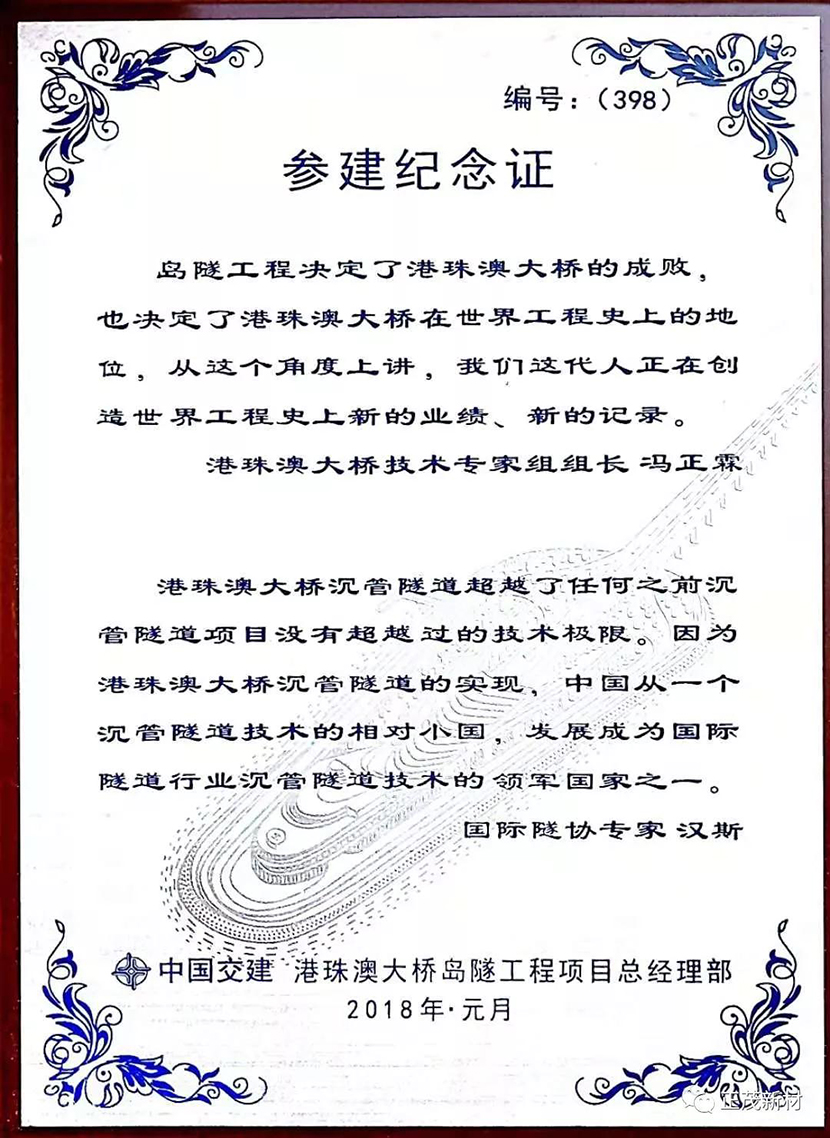 编号：（398）
参建纪念证
岛隧工程决定了港珠澳大桥的成败，
也决定了港珠澳大桥在世界工程史上的地
位，从这个角度上讲，我们这代人正在创
造世界工程史上新的业绩、新的记录。
港珠澳大桥技术专家组组长 冯正霖
港珠澳大桥沉管隧道超越了任何之前沉
管隧道项目没有超越过的技术极限。因为
港珠澳大桥沉管隧道的实现，中国从一个
沉管隧道技术的相对小国，发展成为国际
隧道行业沉管隧道技术的领军国家之一。
国际隧协专家 汉斯
中国交建 港珠澳大桥岛隧工程项目总经理部
2018年·元月
正茂新材